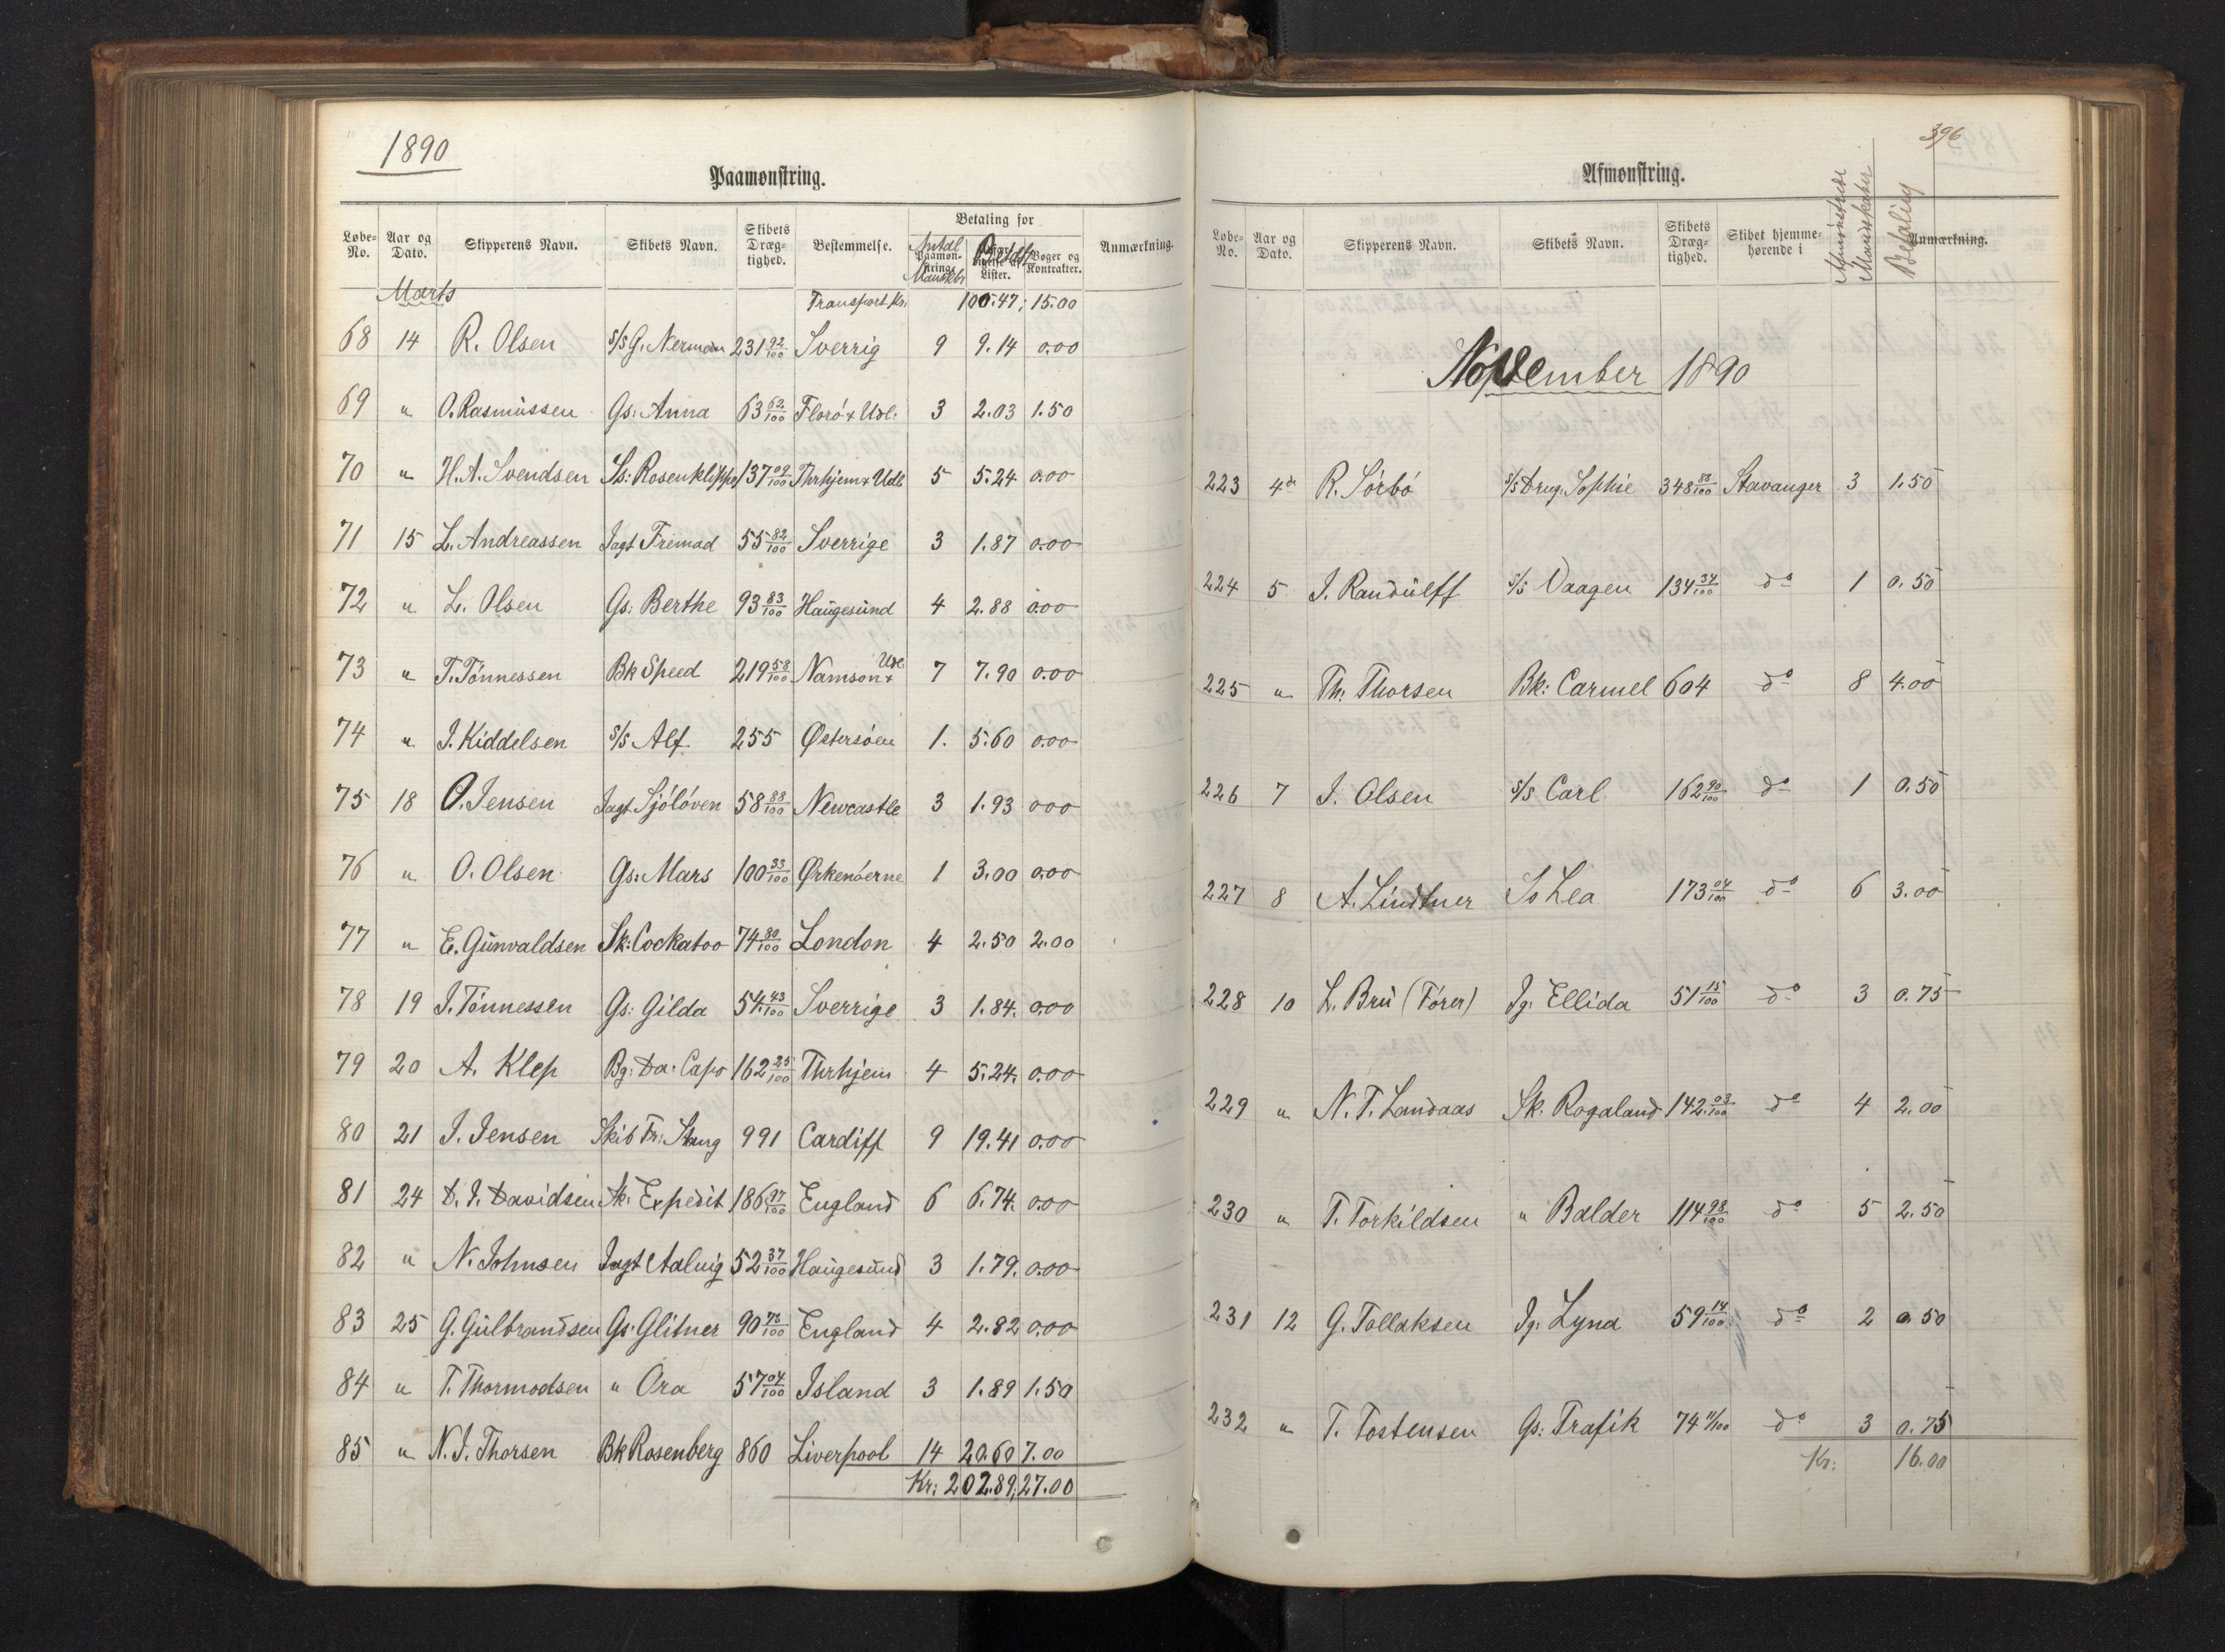 1890
Paamønstring.
Løbe-No. Aar og Dato. Skipperens Navn. Skibets Navn. Skibets Dræg-tighed. Bestemmelse. Betaling for Anmærkning.
Antal Paamøn-strings Mandsk. Betalt Lister. Bøger og Kontrakter.
Marts Transport Kr. 100.47; 15.00
68 14 R. Olsen S/S G. Nerman 231 92/100 Sverrig 9 9.14 0.00
69 " O. Rasmussen Gs: Anna 63 62/100 Florö & Udl: 3 2.03 1.50
70 " H. A. Svendsen Ss: Rosenklippe 137 09/100 Thrhjem & Udl 5 5.24 0.00
71 15 L. Andreassen Jagt Fremad 55 82/100 Sverrige 3 1.87 0.00
72 " L. Olsen Gs: Berthe 93 83/100 Haugesund 4 2.88 0.00
73 " T. Tönnessen Bk Speed 219 58/100 Namson & Udl. 7 7.90 0.00
74 " J. Kiddelsen S/S Alf 255 Østersöen 1. 5.60 0.00
75 18 O. Jensen Jagt Sjölöven 58 88/100 Newcastle 3 1.93 000
76 " O. Olsen Gs: Mars 100 33/100 Ørkenöerne 1 3.00 0.00
77 " E. Gunvaldsen Sk: Cockatoo 74 80/100 London 4 2.50 2.00
78 19 J. Tönnessen Gs: Gilda 54 43/100 Sverrige 3 1.84. 0.00
79 20 A. Klep Bg: Da: Capo 162 25/100 Thrhjem 4 5.24. 0.00
80 21 J. Jensen Skib Fr: Stang 991 Cardiff 9 19.41 0.00
81 24 D. J. Davidsen Sk: Expedit 186 97/100 England 6 6.74. 0.00
82 " N. Johnsen Jagt Aalvig 52 37/100 Haugesund 3 1.79. 0.00
83 25 G. Gulbrandsen Gs: Glitner 90 73/100 England 4 2.82 0.00
84 " T. Thormodsen " Ora 57 04/100 Island 3 1.89 1.50
85 " N. J. Thorsen Bk Rosenberg 860 Liverpool 14 20.60 7.00
Kr: 202.89; 27.00
396
Afmønstring.
Løbe-No. Aar og Dato. Skipperens Navn. Skibets Navn. Skibets Dræg-tighed. Skibet hjemme-hørende i Afmönstrede Mandskaber Betaling Anmærkning.
November 1890
223 4de R. Sörbö S/S Drug. Sophie 348 88/100 Stavanger 3 1.50
224 5 J. Randulff S/S Vaagen 134 34/100 do 1 0.50
225 " Th. Thorsen Bk: Carmel 604 do 8 4.00
226 7 J. Olsen S/S Carl 162 90/100 do 1 0.50
227 8 A. Lindtner Ss Lea 173 04/100 do 6 3.00
228 10 L. Bru (Förer) Jg. Ellida 51 15/100 do 3 0.75
229 " N. T. Landaas Sk: Rogaland 142 03/100 do 4 2.00
230 " T. Torkildsen " Balder 114 98/100 do 5 2.50
231 12 G. Tollaksen Jg. Lyna 59 14/100 do 2 0.50
232 " T. Tostensen Gs: Trafik 74 11/100 do 3 0.75
Kr: 16.00